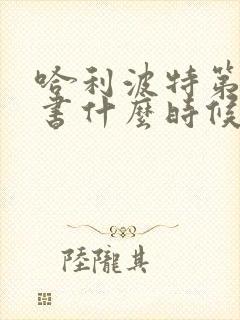 哈利波特第
書什麼時候
陸隴其